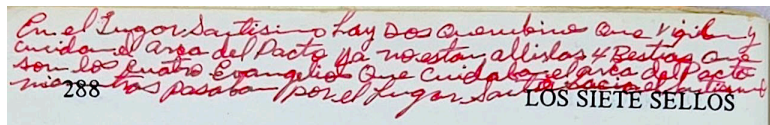 En el Lugar Santisimo hay Dos Querubines Que vigilan y
cuidan el arca del Pacto ya no estan alli las 4 Bestias que
son los cuatro Evangelios Que cuidaban el arca del Pacto
mientras pasaban por el Lugar Santo hacia el Santisimo
288 LOS SIETE SELLOS